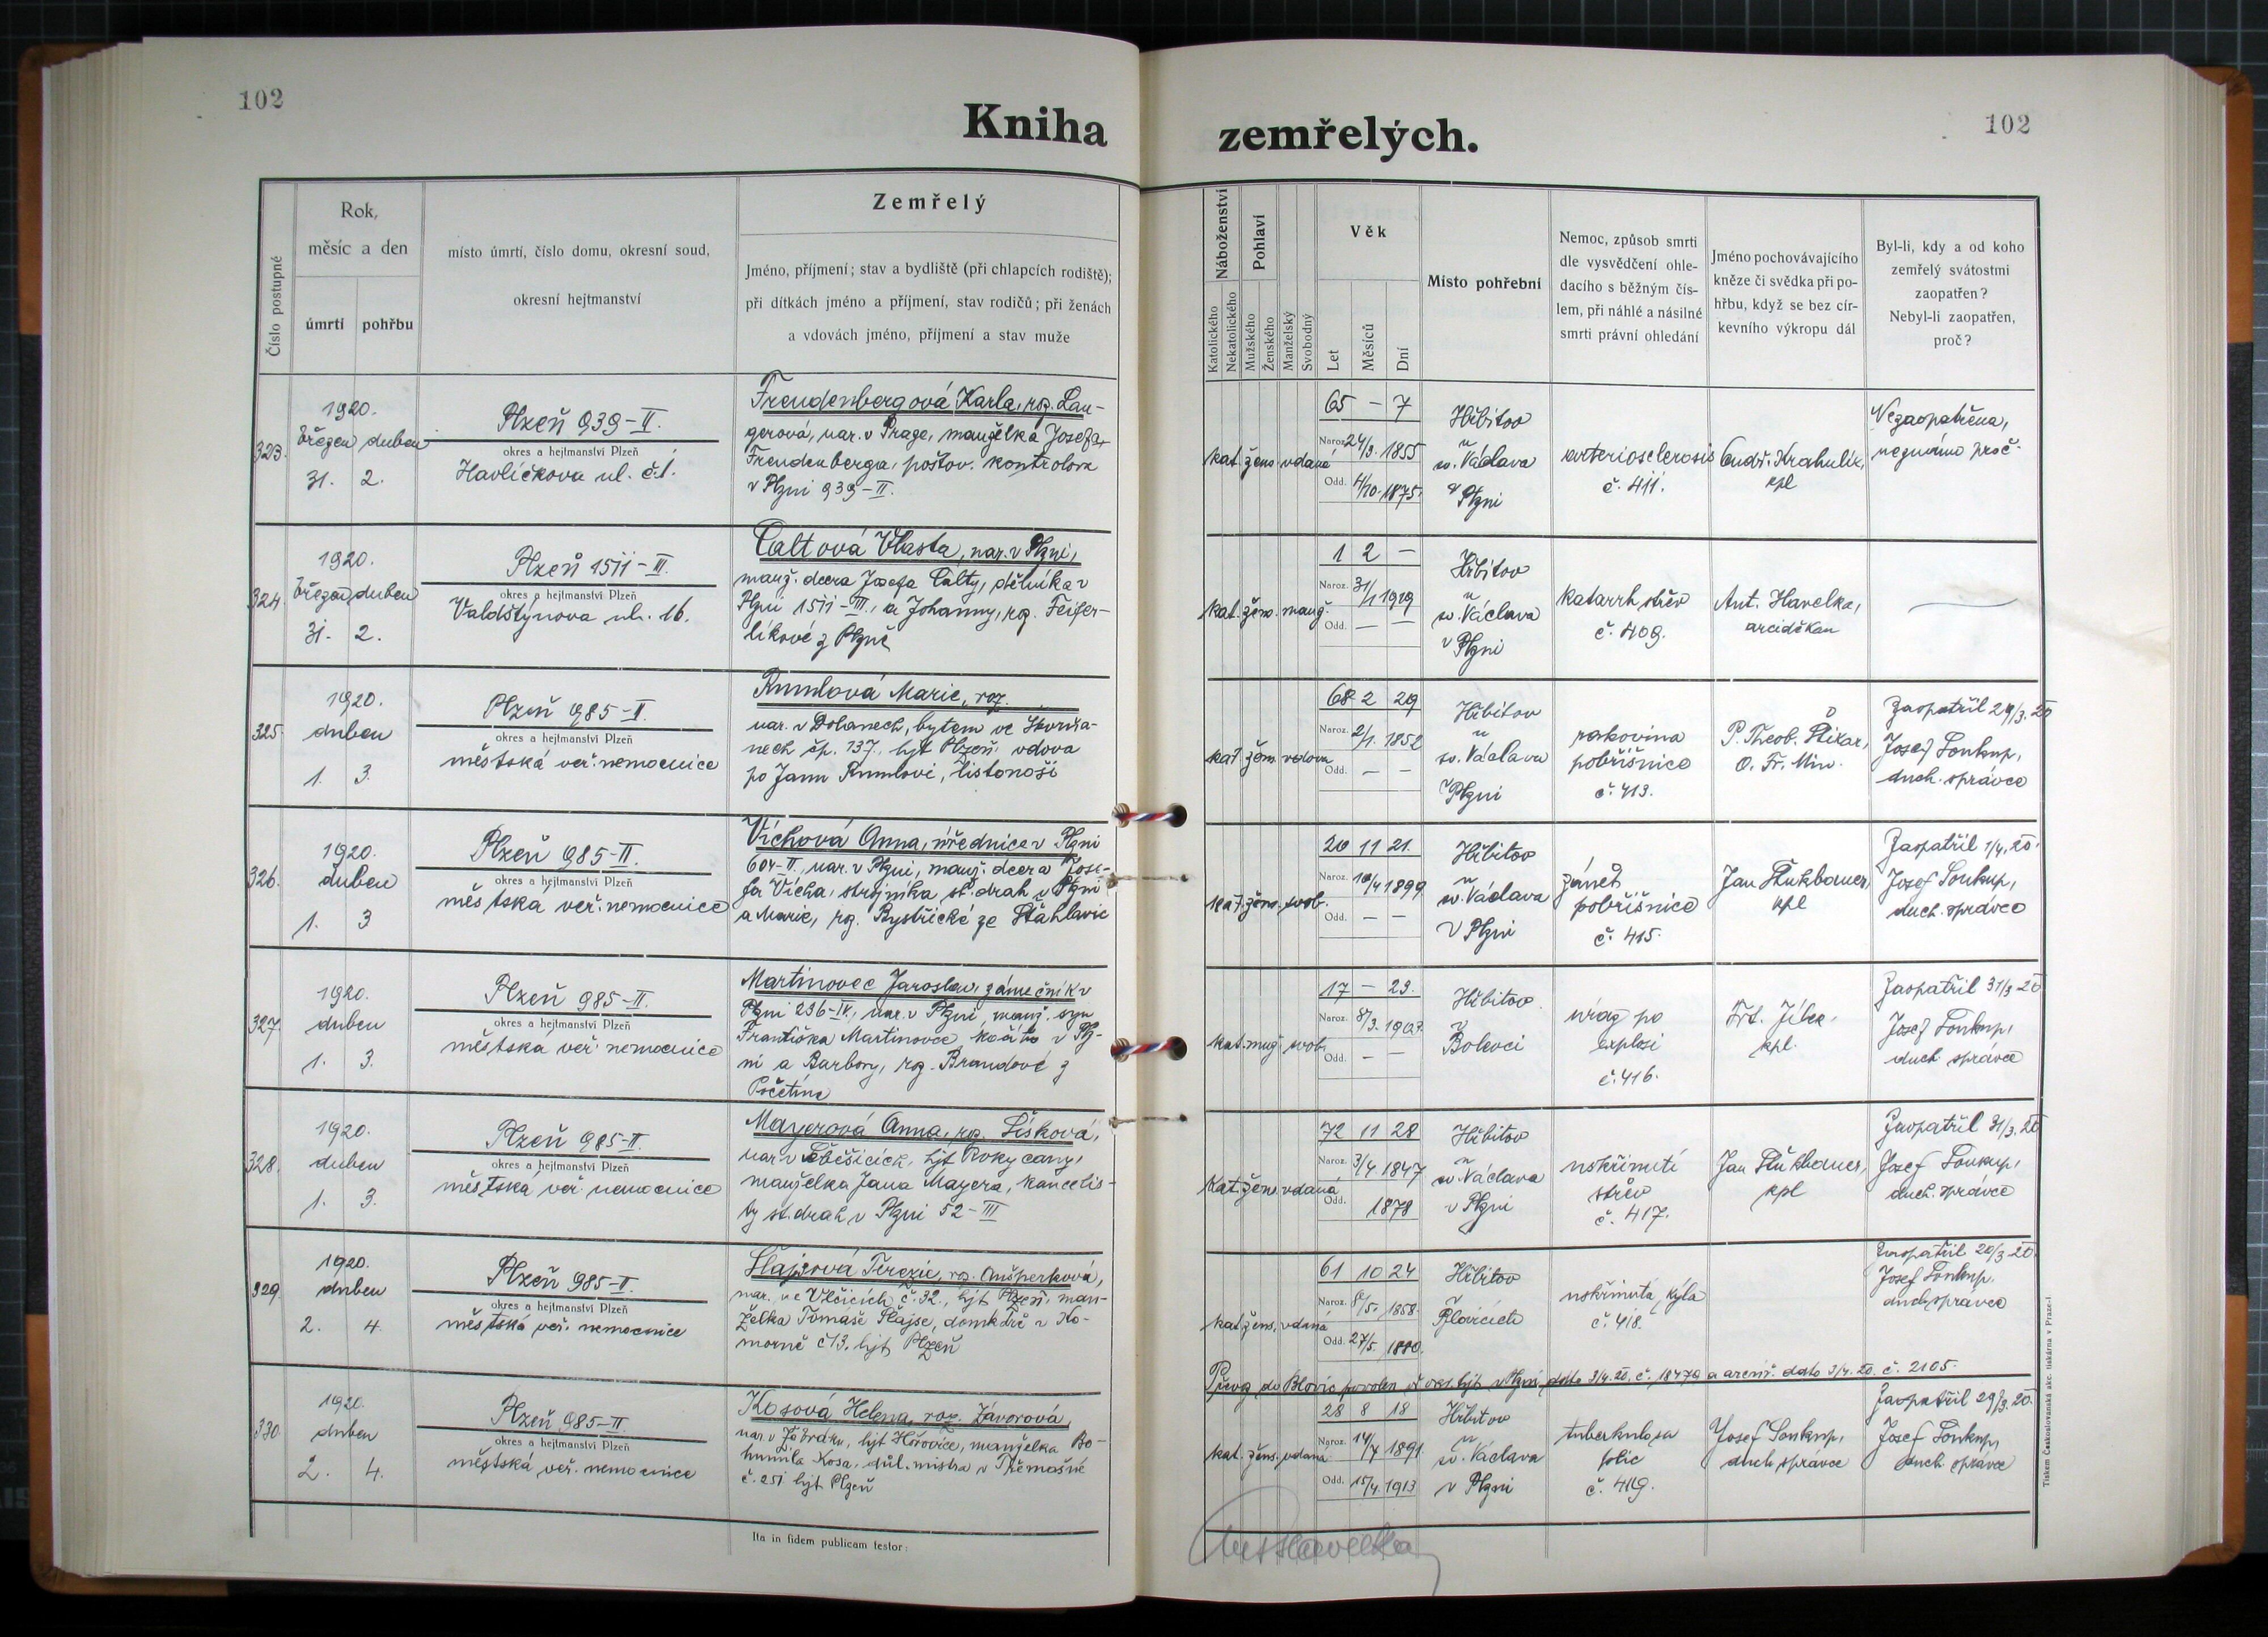 102
Kniha
zemřelých.
102
Číslo postupné
Rok,
měsíc a den
úmrtí
pohřbu
místo úmrtí, číslo domu, okresní soud,
okresní hejtmanství
Zemřelý
Jméno, příjmení; stav a bydliště (při chlapcích rodiště);
při dítkách jméno a příjmení, stav rodičů; při ženách
a vdovách jméno, příjmení a stav muže
Náboženství
Katolického
Nekatolického
Pohlaví
Mužského
Ženského
Manželský
Svobodný
Věk
Let
Měsíců
Dní
Místo pohřební
Nemoc, způsob smrti
dle vysvědčení ohle-
dacího s běžným čís-
lem, při náhlé a násilné
smrti právní ohledání
Jméno pochovávajícího
kněze či svědka při po-
hřbu, když se bez cír-
kevního výkropu dál
Byl-li, kdy a od koho
zemřelý svátostmi
zaopatřen?
Nebyl-li zaopatřen,
proč?
323.
1920.
březen duben
31. 2.
Plzeň 939-II.
okres a hejtmanství Plzeň
Havlíčkova ul. č. 1.
Freudenbergová Karla, roz. Lan-
gerová, nar. v Praze, manželka Josefa
Freudenberga, poštov. kontrolora
v Plzni 939-II.
kat. žens. vdaná
65 - 7
Naroz. 24/3. 1855
Odd. 4/10. 1875.
Hřbitov
u
sv. Václava
v Plzni
arteriosclerosis
č. 411.
Ondř. Krahulík,
kpl
Nezaopatřena,
neznámo proč.
324.
1920.
březen duben
31. 2.
Plzeň 1511-III.
okres a hejtmanství Plzeň
Valdštýnova ul. 16.
Caltová Vlasta, nar. v Plzni,
manž. dcera Josefa Calty, dělníka v
Plzni 1511-III., a Johanny, roz. Feifer-
líkové z Plzně
kat. žens. manž.
1 2 -
Naroz. 31/1 1919
Odd. - -
Hřbitov
u
sv. Václava
v Plzni
katarrh střev
č. 409.
Ant. Havelka,
arciděkan
325.
1920.
duben
1. 3.
Plzeň 985-II.
okres a hejtmanství Plzeň
městská veř. nemocnice
Rumlová Marie, roz.
nar. v Dolanech, bytem ve Skvrňa-
nech čp. 137., hejt Plzeň, vdova
po Janu Rumlovi, listonoši
kat. žens. vdova
68 2 29
Naroz. 2/1. 1852
Odd. - -
Hřbitov
u
sv. Václava
v Plzni
rakovina
pobřišnice
č. 413.
P. Theob. Říkař,
O. Fr. Min.
Zaopatřil 29/3. 20
Josef Soukup,
duch. správce
326.
1920.
duben
1. 3
Plzeň 985-II.
okres a hejtmanství Plzeň
městská veř. nemocnice
Víchová Anna, úřednice v Plzni
604-II, nar. v Plzni, manž. dcera Jose-
fa Vícha, strojníka st. drah v Plzni
a Marie, roz. Bystřické ze Šťáhlavic
kat. žens. svob.
20 11 21.
Naroz. 10/4 1899
Odd. - -
Hřbitov
u
sv. Václava
v Plzni
zánět
pobřišnice
č. 415.
Jan Flükbauer,
kpl
Zaopatřil 1/4. 20.
Josef Soukup,
duch. správce
327.
1920.
duben
1. 3.
Plzeň 985-II.
okres a hejtmanství Plzeň
městská veř. nemocnice
Martinovec Jaroslav, zámečník v
Plzni 236-IV., nar. v Plzni, manž. syn
Františka Martinovce, kočího v Plz-
ni a Barbory, roz. Brandové z
Početína
kat. muž. svob.
17 - 23.
Naroz. 8/3. 1903.
Odd. - -
Hřbitov
v
Bolevci
úraz po
explosi
č. 416.
Frt. Jílek.
kpl.
Zaopatřil 31/3 20
Josef Soukup,
duch. správce
328.
1920.
duben
1. 3.
Plzeň 985-II.
okres a hejtmanství Plzeň
městská veř. nemocnice
Mayerová Anna, roz. Lišková,
nar. v Těběšicích, hejt Rokycany,
manželka Jana Mayera, kancelis-
ty st. drah v Plzni 52-III
kat. žens. vdaná
72 11 28
Naroz. 3/4 1847
Odd. 1878
Hřbitov
u
sv. Václava
v Plzni
uskřinutí
střev
č. 417.
Jan Flükbauer,
kpl
Zaopatřil 31/3. 20
Josef Soukup,
duch. správce
329.
1920.
duben
2. 4.
Plzeň 985-II.
okres a hejtmanství Plzeň
městská veř. nemocnice
Šlajsová Terezie, roz. Aušperková,
nar. ve Vlčicích č. 32., hejt Plzeň, man-
želka Tomáše Šlajse, domkáře v Ko-
morně č 13. hejt Plzeň
kat. žens. vdaná
61 10 24
Naroz. 8/5. 1858.
Odd. 27/5. 1880.
Hřbitov
v
Blovicích
uskřinutá kýla
č. 418.
Zaopatřil 20/3 20.
Josef Soukup,
duch. správce
Převoz do Blovic povolen okr. hejt. v Plzni, ddto 3/4. 20. č. 18479 a arciř. ddto 3/4. 20. č. 2105.
330.
1920.
duben
2. 4.
Plzeň 985-II.
okres a hejtmanství Plzeň
městská veř. nemocnice
Kosová Helena, roz. Závorová
nar. v Žebráku, hejt Hořovice, manželka Bo-
humila Kosa, důl. mistra v Třemošné
č. 251 hejt Plzeň
kat. žens. vdaná
28 8 18
Naroz. 14/7 1891
Odd. 15/4. 1913
Hřbitov
u
sv. Václava
v Plzni
tuberkulosa
plic
č. 419.
Josef Soukup,
duch. správce
Zaopatřil 29/3. 20.
Josef Soukup,
duch. správce
Ita in fidem publicam testor:
Ant Havelka
Tiskem Českoslovanská akc. tiskárna v Praze-I.